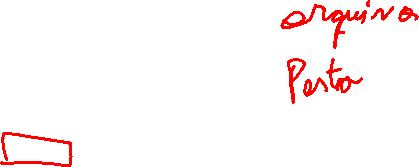 arquivo
Pasta